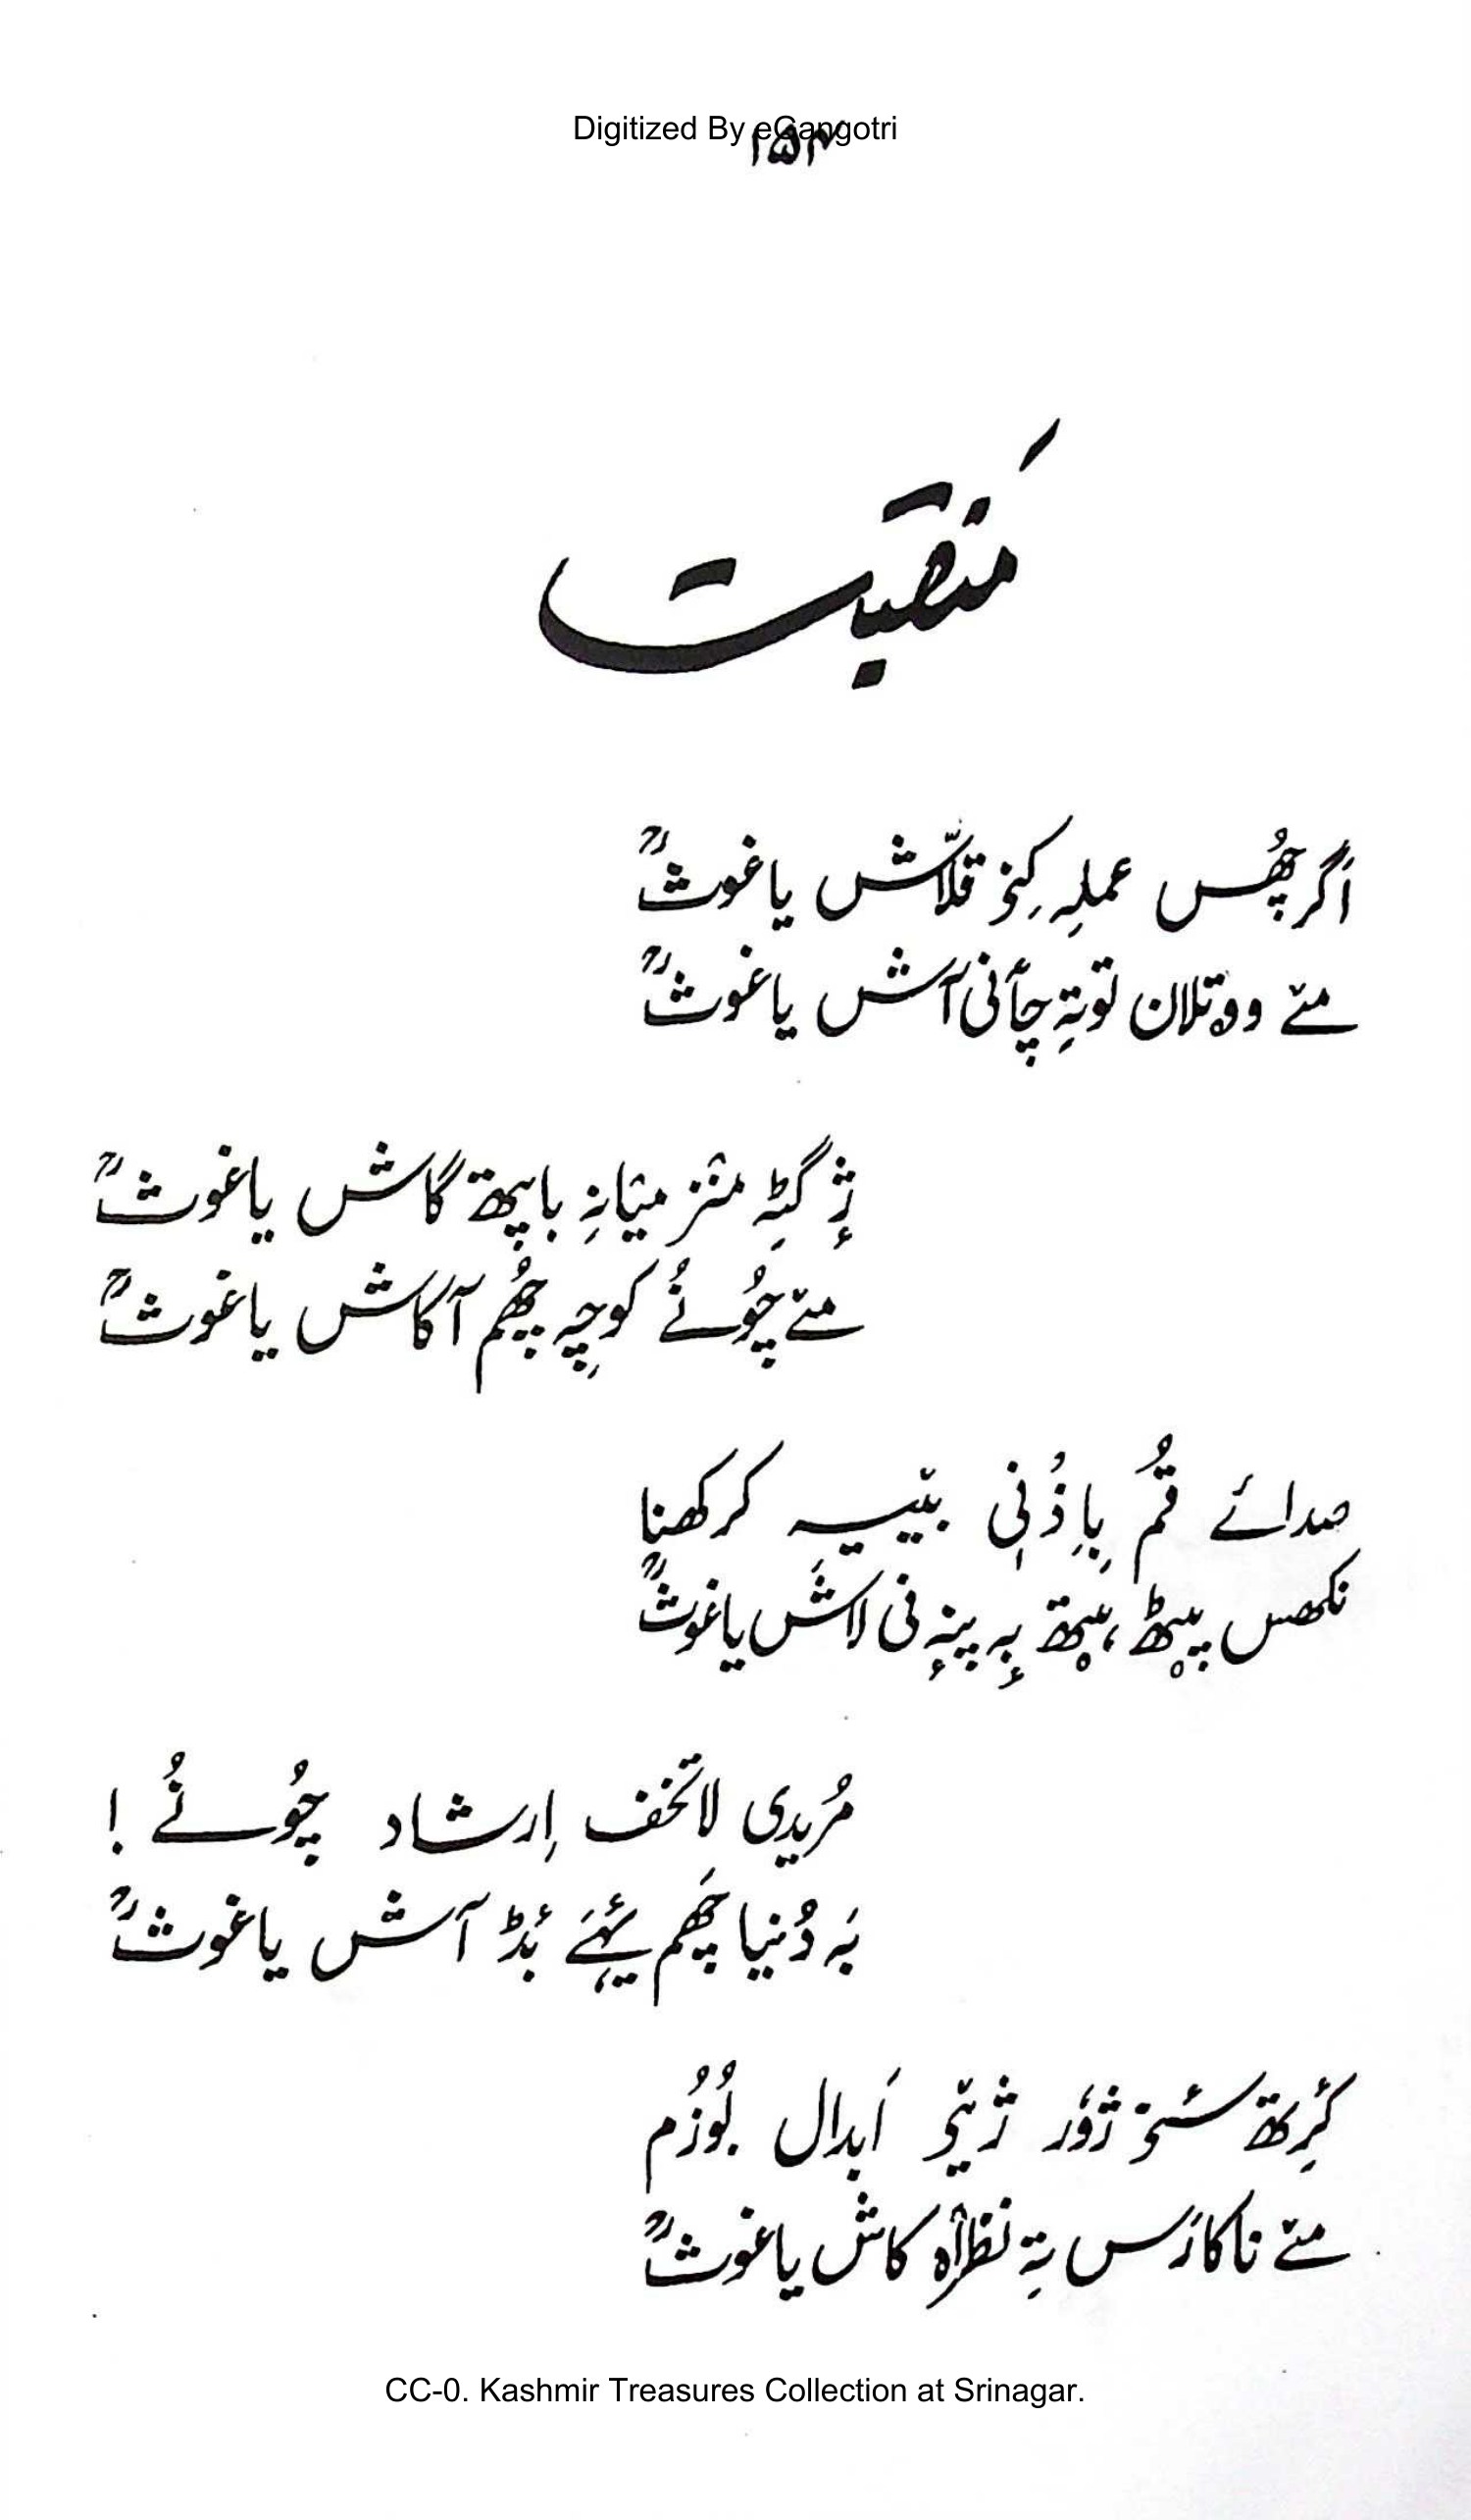 Digitized By eGangotri
۱۵۴
مَنقبت
اگر چھُس عملہِ کِنۍ قلاّش یا غوثؒ
مےٚ ووٚتلان توتہِ چأنی آش یا غوثؒ
ژٕ گٹہِ منٛز میانہِ باپتھ گاش یا غوثؒ
مےٚ چوٗنُے کوچہِ چھُم آکاش یا غوثؒ
صدائے قُم بِاِذْنِی بیٚیہ کرکھنا
نکھس پیٚٹھ، ہیٚتھ بہٕ پنہٕ نی لاش یا غوثؒ
مُریدی لاتخف اِرشاد چوٗنُے !
بَہ دُنیا چھَم یِہَے بٔڈ آش یا غوثؒ
کٔرِتھ سٔنۍ ژوٗر ژےٚ اَبدال بوٗزُم
مےٚ ناکارَس تہِ نظراہ کاش یا غوثؒ
CC-0. Kashmir Treasures Collection at Srinagar.